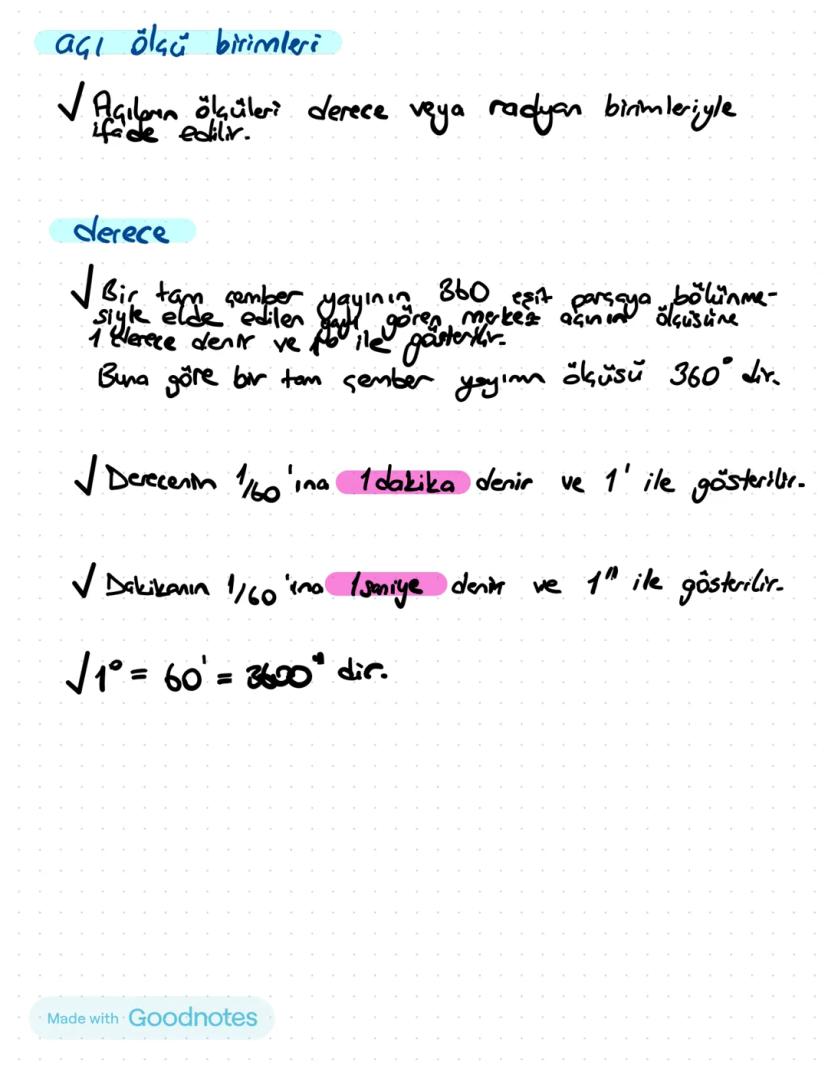 açı ölçü birimleri
✓ Açıların ölçüleri derece veya radyan birimleriyle
ifade edilir.
derece
✓ Bir tam çember yayının 360 eşit parçaya bölünme-
siyle elde edilen yayı gören merkez açının ölçüsüne
1 derece denir ve 1° ile gösterilir.
Buna göre bir tam çember yayının ölçüsü 360° dir.
✓ Derecenin 1/60'ına 1 dakika denir ve 1' ile gösterilir.
✓ Dakikanın 1/60'ına 1 saniye denir ve 1" ile gösterilir.
✓ 1° = 60' = 3600" dir.
Made with Goodnotes